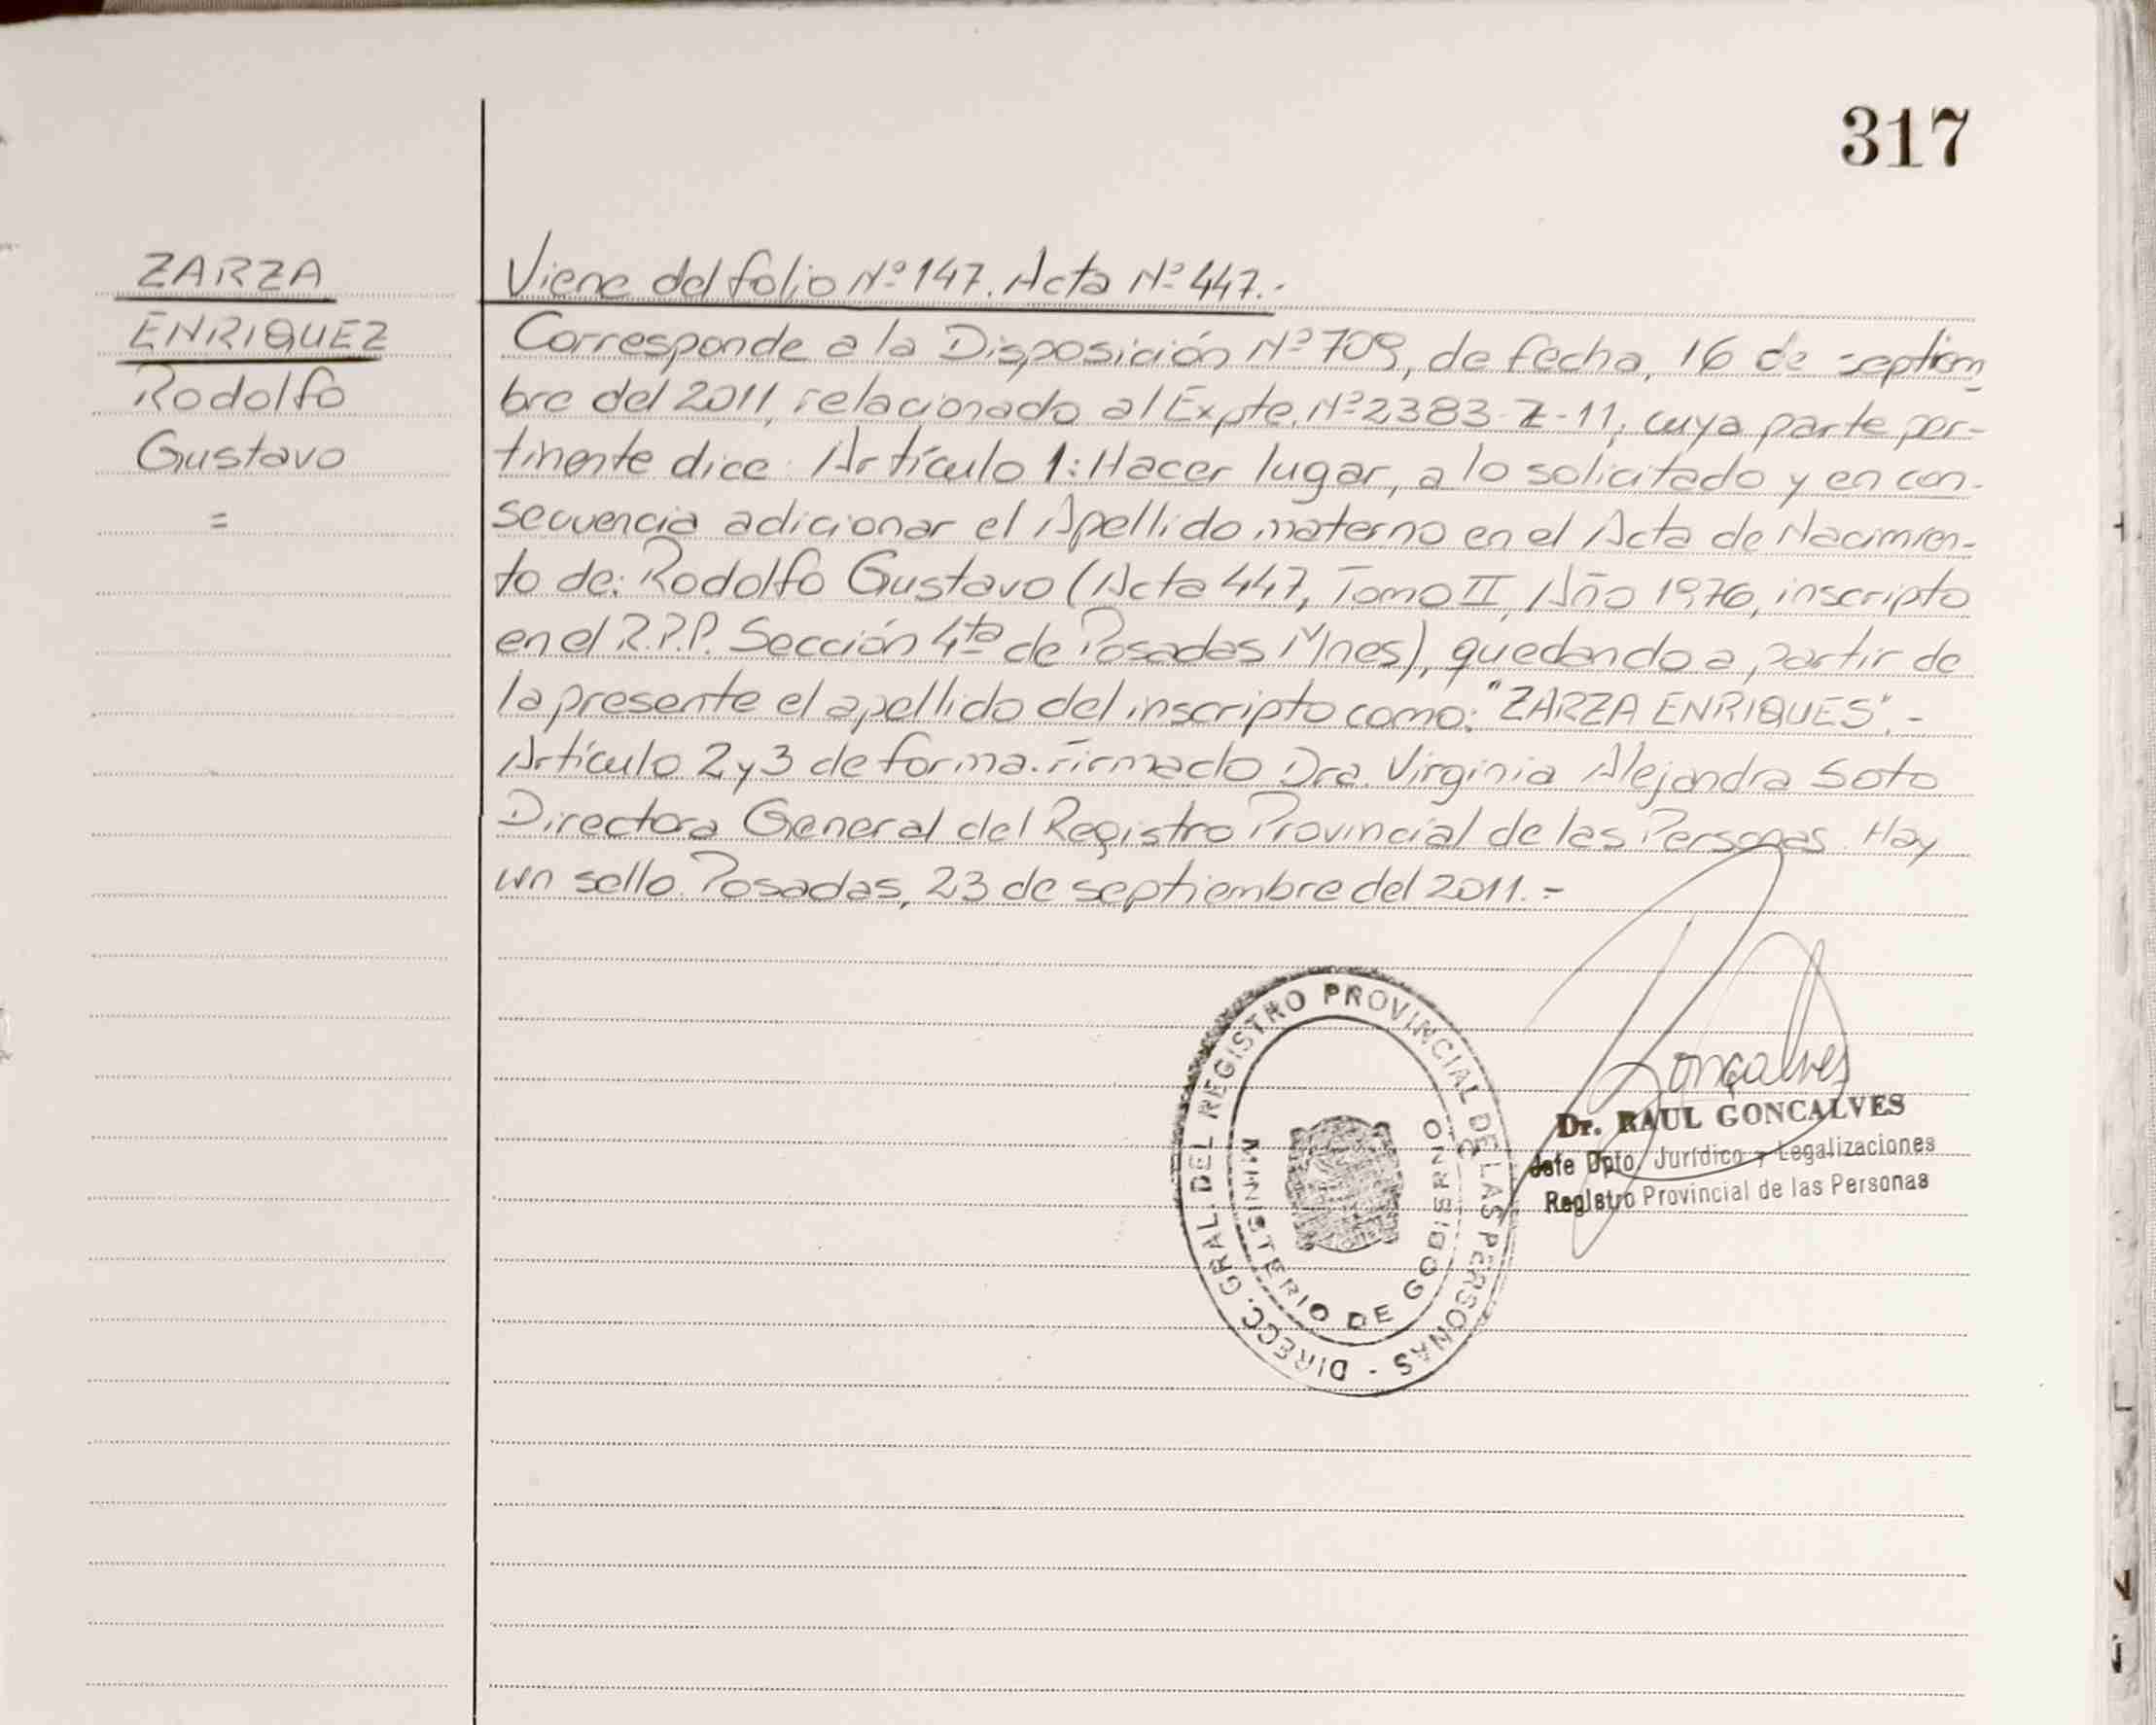 317
ZARZA
ENRIQUEZ
Rodolfo
Gustavo
=
Viene del folio Nº 147. Acta Nº 447.-
Corresponde a la Disposición Nº 709, de fecha, 16 de septiem
bre del 2011, relacionado al Expte. Nº 2383-Z-11, cuya parte per-
tinente dice: Artículo 1: Hacer lugar, a lo solicitado y en con-
secuencia adicionar el Apellido materno en el Acta de Nacimien-
to de: Rodolfo Gustavo (Acta 447, Tomo II, Año 1976, inscripto
en el R.P.P. Sección 4ta de Posadas Mnes), quedando a partir de
la presente el apellido del inscripto como: "ZARZA ENRIQUES".-
Artículo 2 y 3 de forma. Firmado Dra. Virginia Alejandra Soto
Directora General del Registro Provincial de las Personas. Hay
un sello. Posadas, 23 de septiembre del 2011.=
DIRECC. GRAL. DEL REGISTRO PROVINCIAL DE LAS PERSONAS -
MINISTERIO DE GOBIERNO
Gonçalves
Dr. RAUL GONCALVES
Jefe Dpto. Jurídico y Legalizaciones
Registro Provincial de las Personas